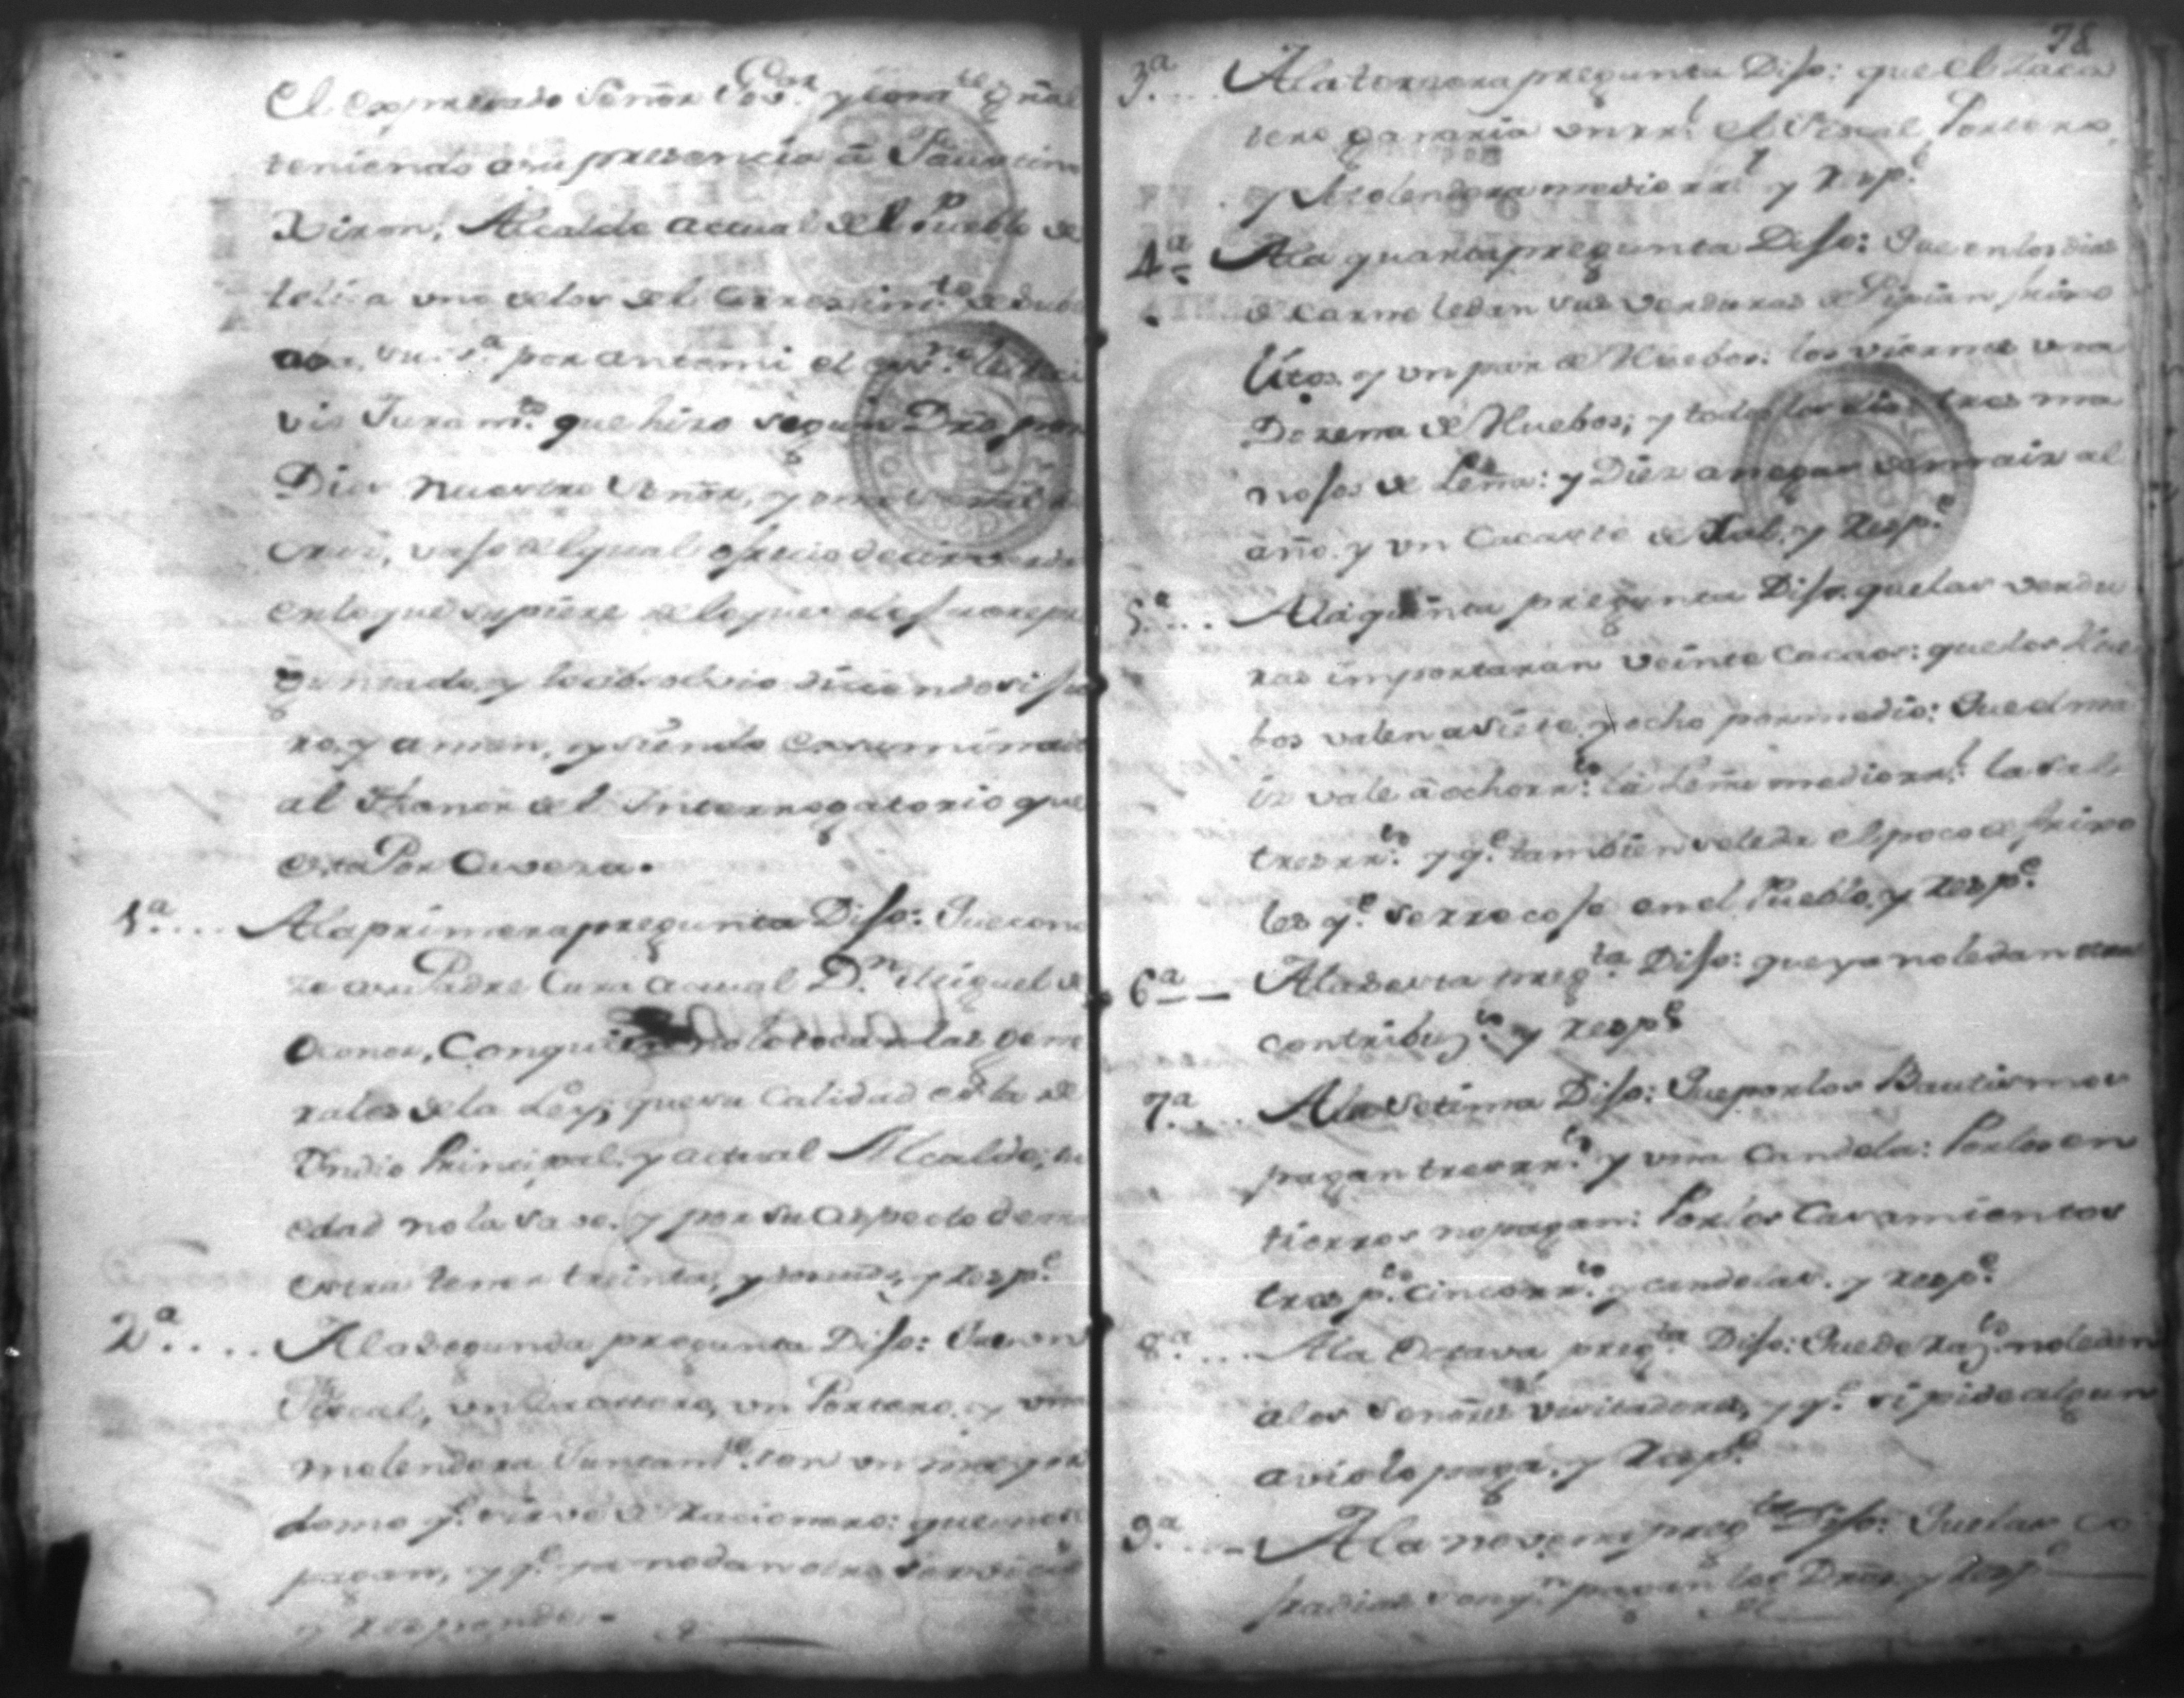 El expresado Señor Gov.or y Com.te Gral
teniendo asu presencia â Faustin
Xiron, Alcalde actual del Pueblo de
uno delos del
por antemi el le Reci
vio Juram.to que hizo segun Dro por
Dios Nuestro Señor, y una señal de
Cruz, vaso del qual ofrecio decir verda
enlo que supiere delo que le fuere pre
guntado, y lo absolvio diciendo si Ju
ro, y amen, y siendo examinado
al thenor del Interrogatorio que
esta Por Cavesa.
1.a .... Ala primera pregunta Dijo: Que cono
ze asu Padre Cura actual D.n Miguel de
Oconor, Con quien no le tocan las gene
rales dela Ley; que su Calidad es la de
Yndio Principal, y actual Alcalde; su
edad no la save, y por su aspecto demu
estra tener treinta, y y resp.e
2.a .... Ala segunda pregunta Dijo: Que un
Fiscal, un un Portero, y una
molendera Juntam.te con un mayor
domo q.e sirve de Racionero: que no se
pagan, y q.e ya no dan otro servicio
y responde.
78
3.a .... Ala tercera pregunta Dijo: que el Zaca
tero ganaria un rr.l el Fiscal, Portero,
y Molendera medio rr.l y resp.e
4.a Ala quarta pregunta Dijo: Que en los dias
de carne le dan sus verduras de Pipian, frixo
litos, y un par de Huebos: los viernes una
Dozena de Huebos; y todos los dias tres ma
nojos de Leña: y Diez anegas de maiz al
año, y un Cacaste de Sal, y Resp.e
5.a ... Ala quinta pregunta Dijo, que las verdu
ras importaran veinte Cacaos: que los Hue
bos valen a siete, y ocho por medio: Que el ma
iz vale â ocho rr.s la Leña medio rr.l la sal
tres rr.s y q.e tambien se le da el poco de frixo
les q.e se rrecoje en el Pueblo, y Resp.e
6.a -- Ala sexta preg.ta Dijo: que ya no le dan otra
contribuz.on y resp.e
7.a ... Ala Setima Dijo: Que por los Bautismos
pagan tres rr.s y una Candela: Por los en
tierros no pagan: Por los Casamientos
tres p.s cinco rr.s y candelas, y resp.e
8.a ... Ala Octava preg.ta Dijo: Que de no le dan
alos Señores Visitadores, y q.e si pide algun
avio lo paga, y Resp.e
9.a ... Ala novena preg.ta Dijo: Que las co
fradias son q.n pagan los Dros, y Resp.e